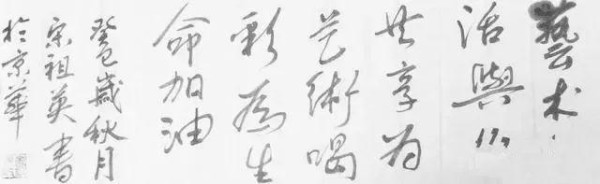 藝术
活與
共享为
艺術喝
彩為生
命加油
癸巳歲秋月
宋祖英書
於京華